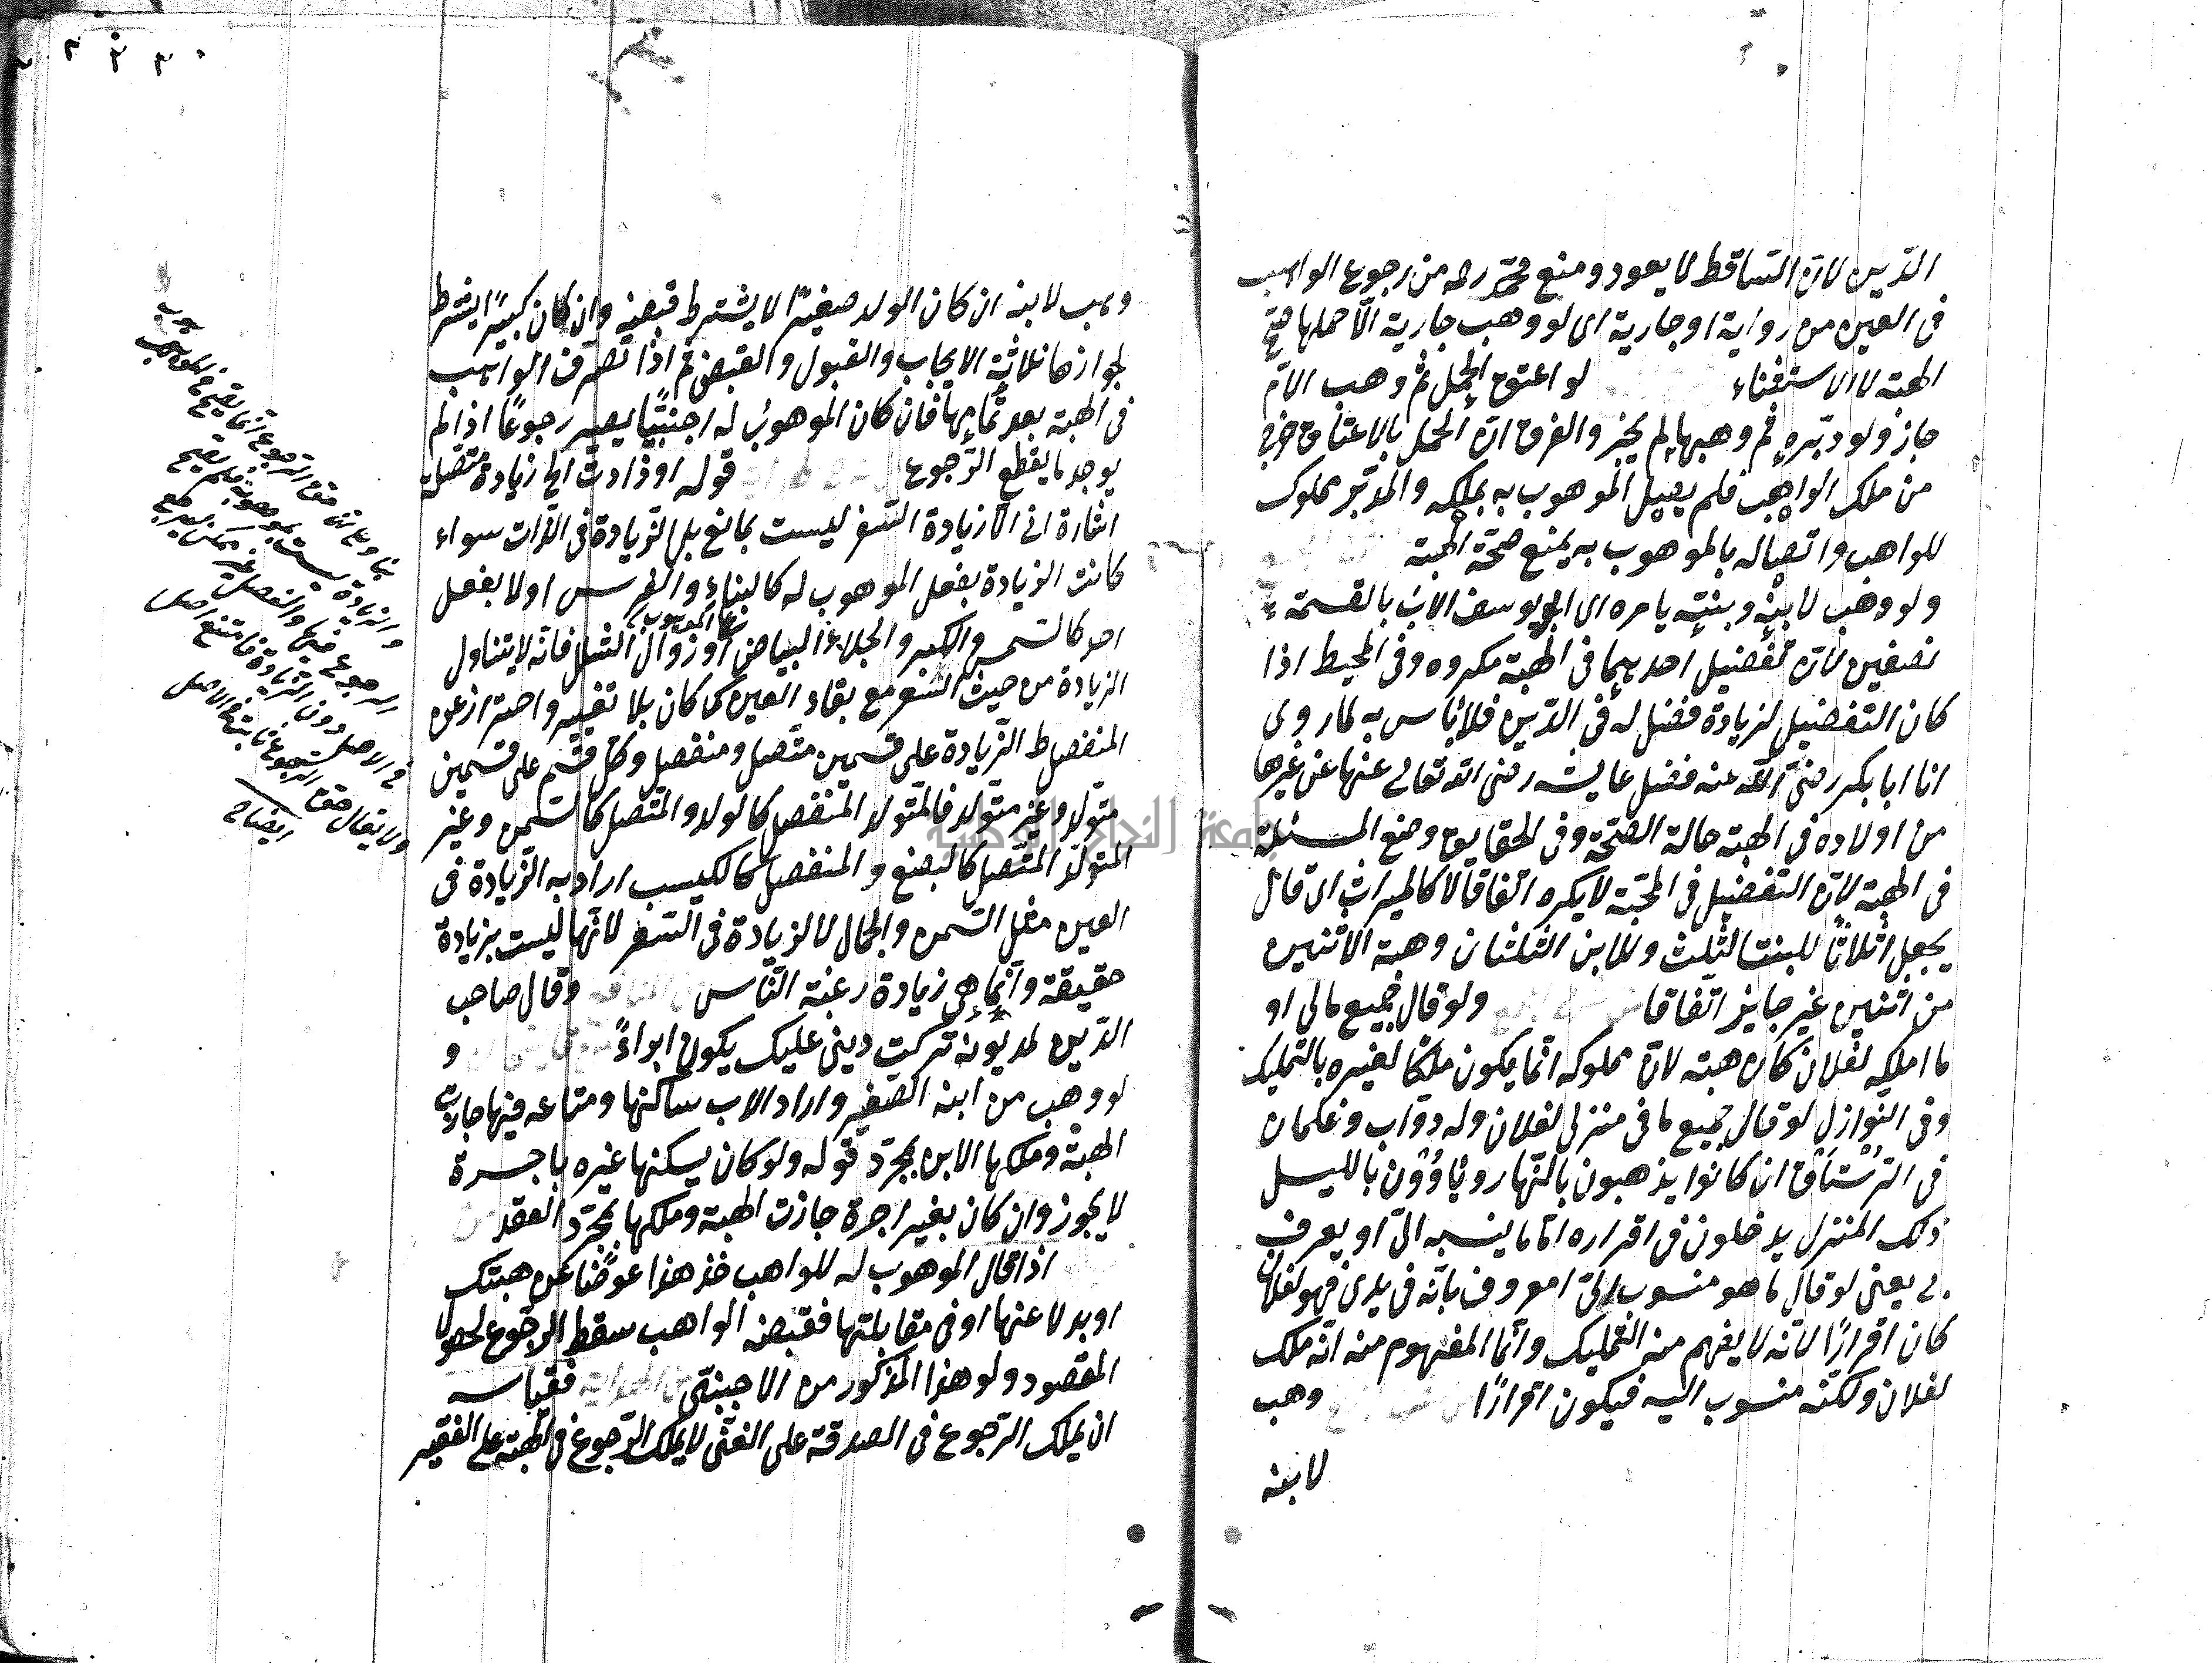 الدّين لانّ السّاقط لا يعود ومنع محمّد رحمه من رجوع الواهب
فى العين من رواية او جارية اى لو وهب جارية الّا حملها صحّ
الهبة لا الاستثناء لو اعتق الحمل ثم وهب الامّ
جاز ولو دبّره ثم وهبها لم يجز والفرق انّ الحمل بالاعتاق خرج
من ملك الواهب فلم يصل الموهوب به بملكه والمدبّر مملوك
للواهب واتصاله بالموهوب به يمنع صحّة الهبة
ولو وهب لابنه وبنته يامره اى ابو يوسف الاب بالقسمة
نصفين لانّ تفضيل احديهما فى الهبة مكروه وفى المحيط اذا
كان التفضيل لزيادة فضل له فى الدّين فلا بأس به لما روى
انا ابا بكر رضى اللّه عنه فضل عايشه رضى الله تعالى عنها عن غيرها
من اولاده فى الهبة حالة الصّحّة وفى الحقايق وضع المسئلة
فى الهبة لانّ التفضيل فى المحبّة لا يكره اتفاقا لا كالميراث اى قال
يجعل اثلاثًا للبنت الثلث وللابن الثلثان وهبة الاثنين
من اثنين غير جايز اتّفاقا ولو قال جميع مالى او
ما املكه لفلان كان هبة لانّ مملوكه انّما يكون ملكًا لغيره بالتمليك
وفى النّوازل لو قال جميع ما فى منزلى لفلان وله دوّاب وغلمان
فى الرّستاق ان كانوا يذهبون بالنّهار وياؤون بالليل
ذلك المنزل يدخلون فى اقراره امّا ما ينسبه الىّ او يعرف
لى يعنى لو قال ما هو منسوب الىّ او معروف بانّه فى يدى فهو لفلان
كان اقرارًا لانّه لا يفهم منه التمليك وانّما المفهوم منه انّه ملك
لفلان ولكنّه منسوب اليه فيكون اقرارًا وهب
لابنه
وهب لابنه ان كان الولد صغيرًا لا يشترط قبضه وان كان كبيرًا يشترط
لجوازها ثلاثة الايجاب والقبول والقبض ثم اذا تصرف الواهب
فى الهبة بعد تمامها فان كان الموهوب له اجنبيًّا يصير رجوعًا اذا لم
يوجد ما يقطع الرّجوع قوله او زادت اى زيادة متّصلة
اشارة الى ان زيادة السّعر ليست بمانع بل الزّيادة فى الذّات سواء
كانت الزيادة بفعل الموهوب له كالبناء والغرس او لا بفعل
احد كالسّمن والكبر وانجلاء البياض او زوال الشلل فانّه لا يتناول
الزيادة من حيث السّعر مع بقاء العين كما كان بلا تغيير واحتراز عن
المنفصل ط الزّيادة على قسمين متّصل ومنفصل وكلّ قسم على قسمين
متولّد وغير متولّد فالمتولد المنفصل كالولد والمتّصل كالسّمن وغير
المتولّد المتّصل كالصبغ والمنفصل كالكسب اراد به الزّيادة فى
العين مثل السّمن والجمال لا الزيادة فى السّعر لانّها ليست بزيادة
حقيقة وانّما هى زيادة رغبة النّاس وقال صاحب
الدّين لمديونه تركت دينى عليك يكون ابراءً و
لو وهب من ابنه الصّغير واراد الاب ساكنها ومتاعه فيها جازت
الهبة وملكها الابن بمجرّد قوله ولو كان يسكنها غيره باجرة
لا يجوز وان كان بغير اجرة جازت الهبة وملكها بمجرّد العقد
اذا قال الموهوب له للواهب خذ هذا عوضًا عن هبتك
او بدلا عنها او فى مقابلتها فقبضه الواهب سقط الرجوع لحصول
المقصود ولو هذا المذكور من الاجنبىّ فقياسه
ان يملك الرّجوع فى الصدقة على الغنى لا يملك الرّجوع فى الهبة على الفقير
حق الرّجوع انّما يصحّ
والزيادة ليست بموهوبة فلم يصحّ
الرجوع فيها والفصل غير ممكن ليرجع
فى الاصل دون الزّيادة فامتنع اصلا
ولا يقال حق الرّجوع ثابتة فى الاصل
ايضاح
جامعة النجاح الوطنية